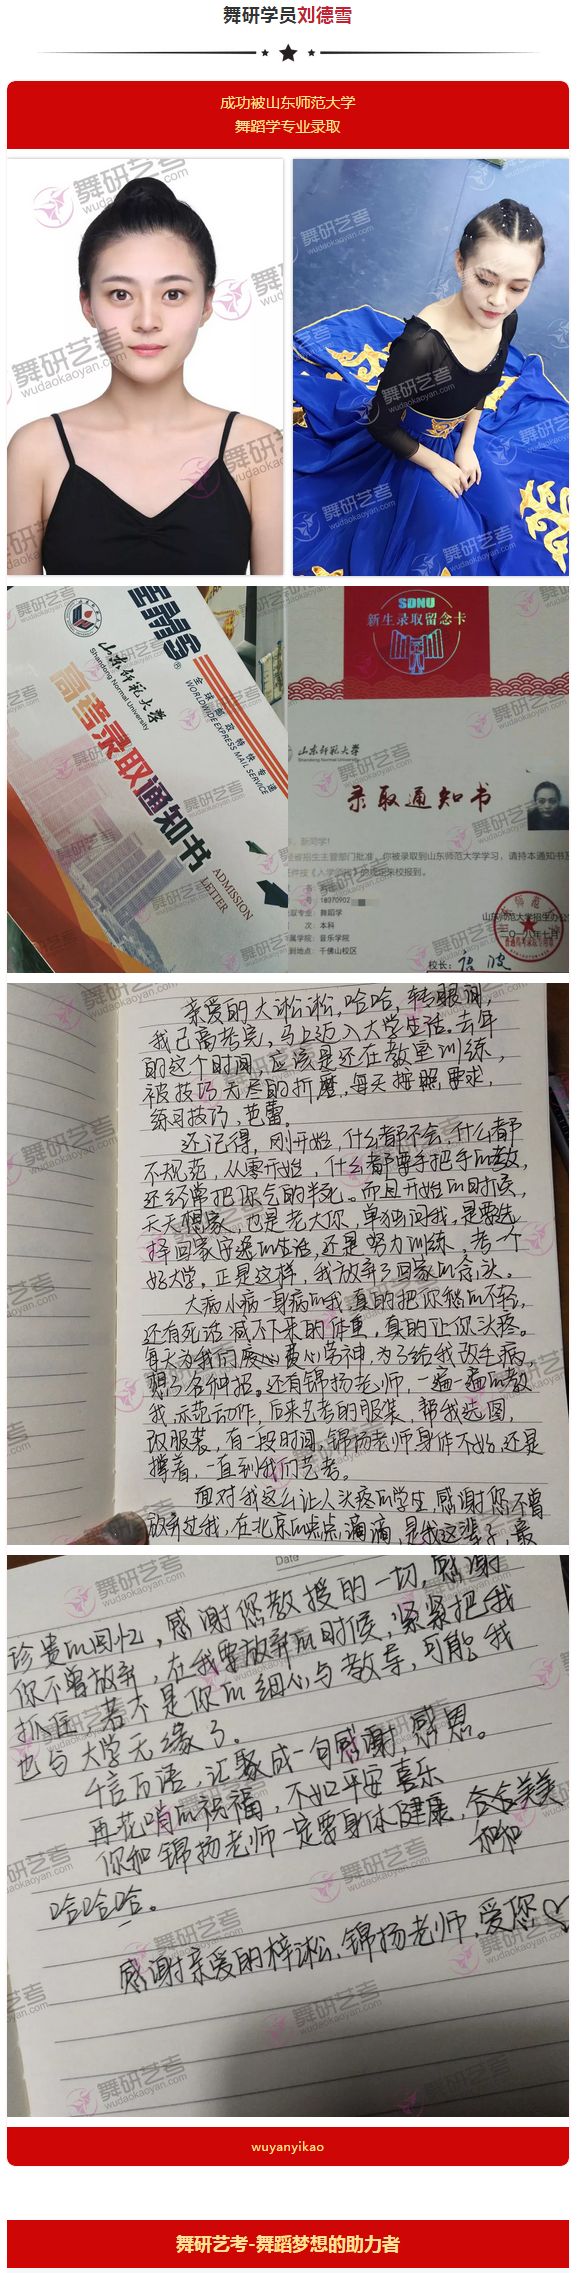 舞研学员刘德雪
成功被山东师范大学
舞蹈学专业录取
舞研艺考
wudaokaoyan.com
全球邮政特快专递
WORLDWIDE EXPRESS MAIL SERVICE
山东师范大学
Shandong Normal University
高考录取通知书
ADMISSION
LETTER
SDNU
新生录取留念卡
山东师范大学
Shandong Normal University
录取通知书
新同学!
省招生主管部门批准,你被录取到山东师范大学学习,请持本通知书及
18370902
取专业: 舞蹈学
次: 本科
属学院: 音乐学院
到地点: 千佛山校区
山东师范大学招生办公
二〇一八年七月
校长:
亲爱的大淞淞,哈哈,转眼间,
我已高考完,马上迈入大学生活。去年
的这个时间,应该是还在教室训练,
被技巧大尽的折磨,每天按照要求,
练习技巧,芭蕾。
还记得,刚开始,什么都不会,什么都
不规范,从零开始,什么都要手把手的教,
还经常把你气的半死。而且开始的时候,
天天想家,也是老大你,单独问我,是要选
择回家安逸的生活,还是努力训练,考一个
好大学。正是这样,我放弃了回家的念头。
大病小病一身病的我,真的把你愁的不轻,
还有死活减不下来的体重,真的让你头疼。
每天为我们废心费心劳神,为了给我改毛病,
想了各种招。还有锦扬老师,一遍一遍的教
我,示范动作,后来艺考的服装,帮我选图,
改服装,有一段时间,锦扬老师身体不好,还是
撑着,一直到我们艺考。
面对我这么让人头疼的学生,感谢您不曾
放弃过我,在北京的点点滴滴,是我这辈子,最
Date
珍贵的回忆,感谢您教授的一切,感谢
你不曾放弃,在我要放弃的时候,紧紧把我
抓住,若不是你的细心与教导,可能我
也与大学无缘了。
千言万语,汇聚成一句感谢,感恩。
再花哨的祝福,不如平安喜乐
你和锦扬老师一定要身体健康,合合美美
和和
哈哈哈。
感谢亲爱的梓淞,锦扬老师,爱您♡
wuyanyikao
舞研艺考-舞蹈梦想的助力者